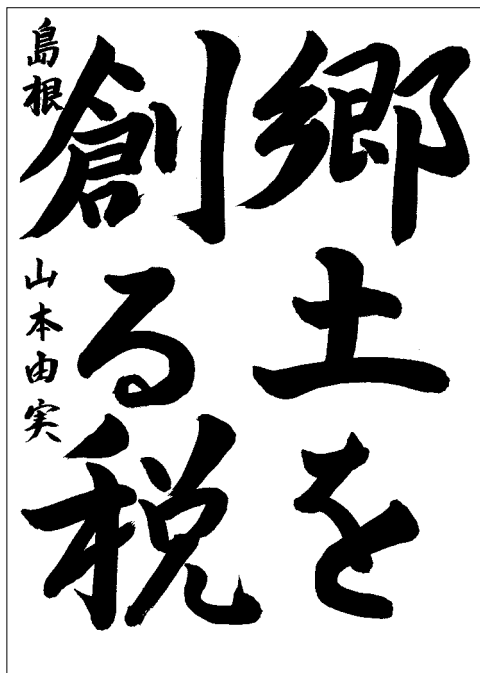 郷土を
創る税
島根 山本由実